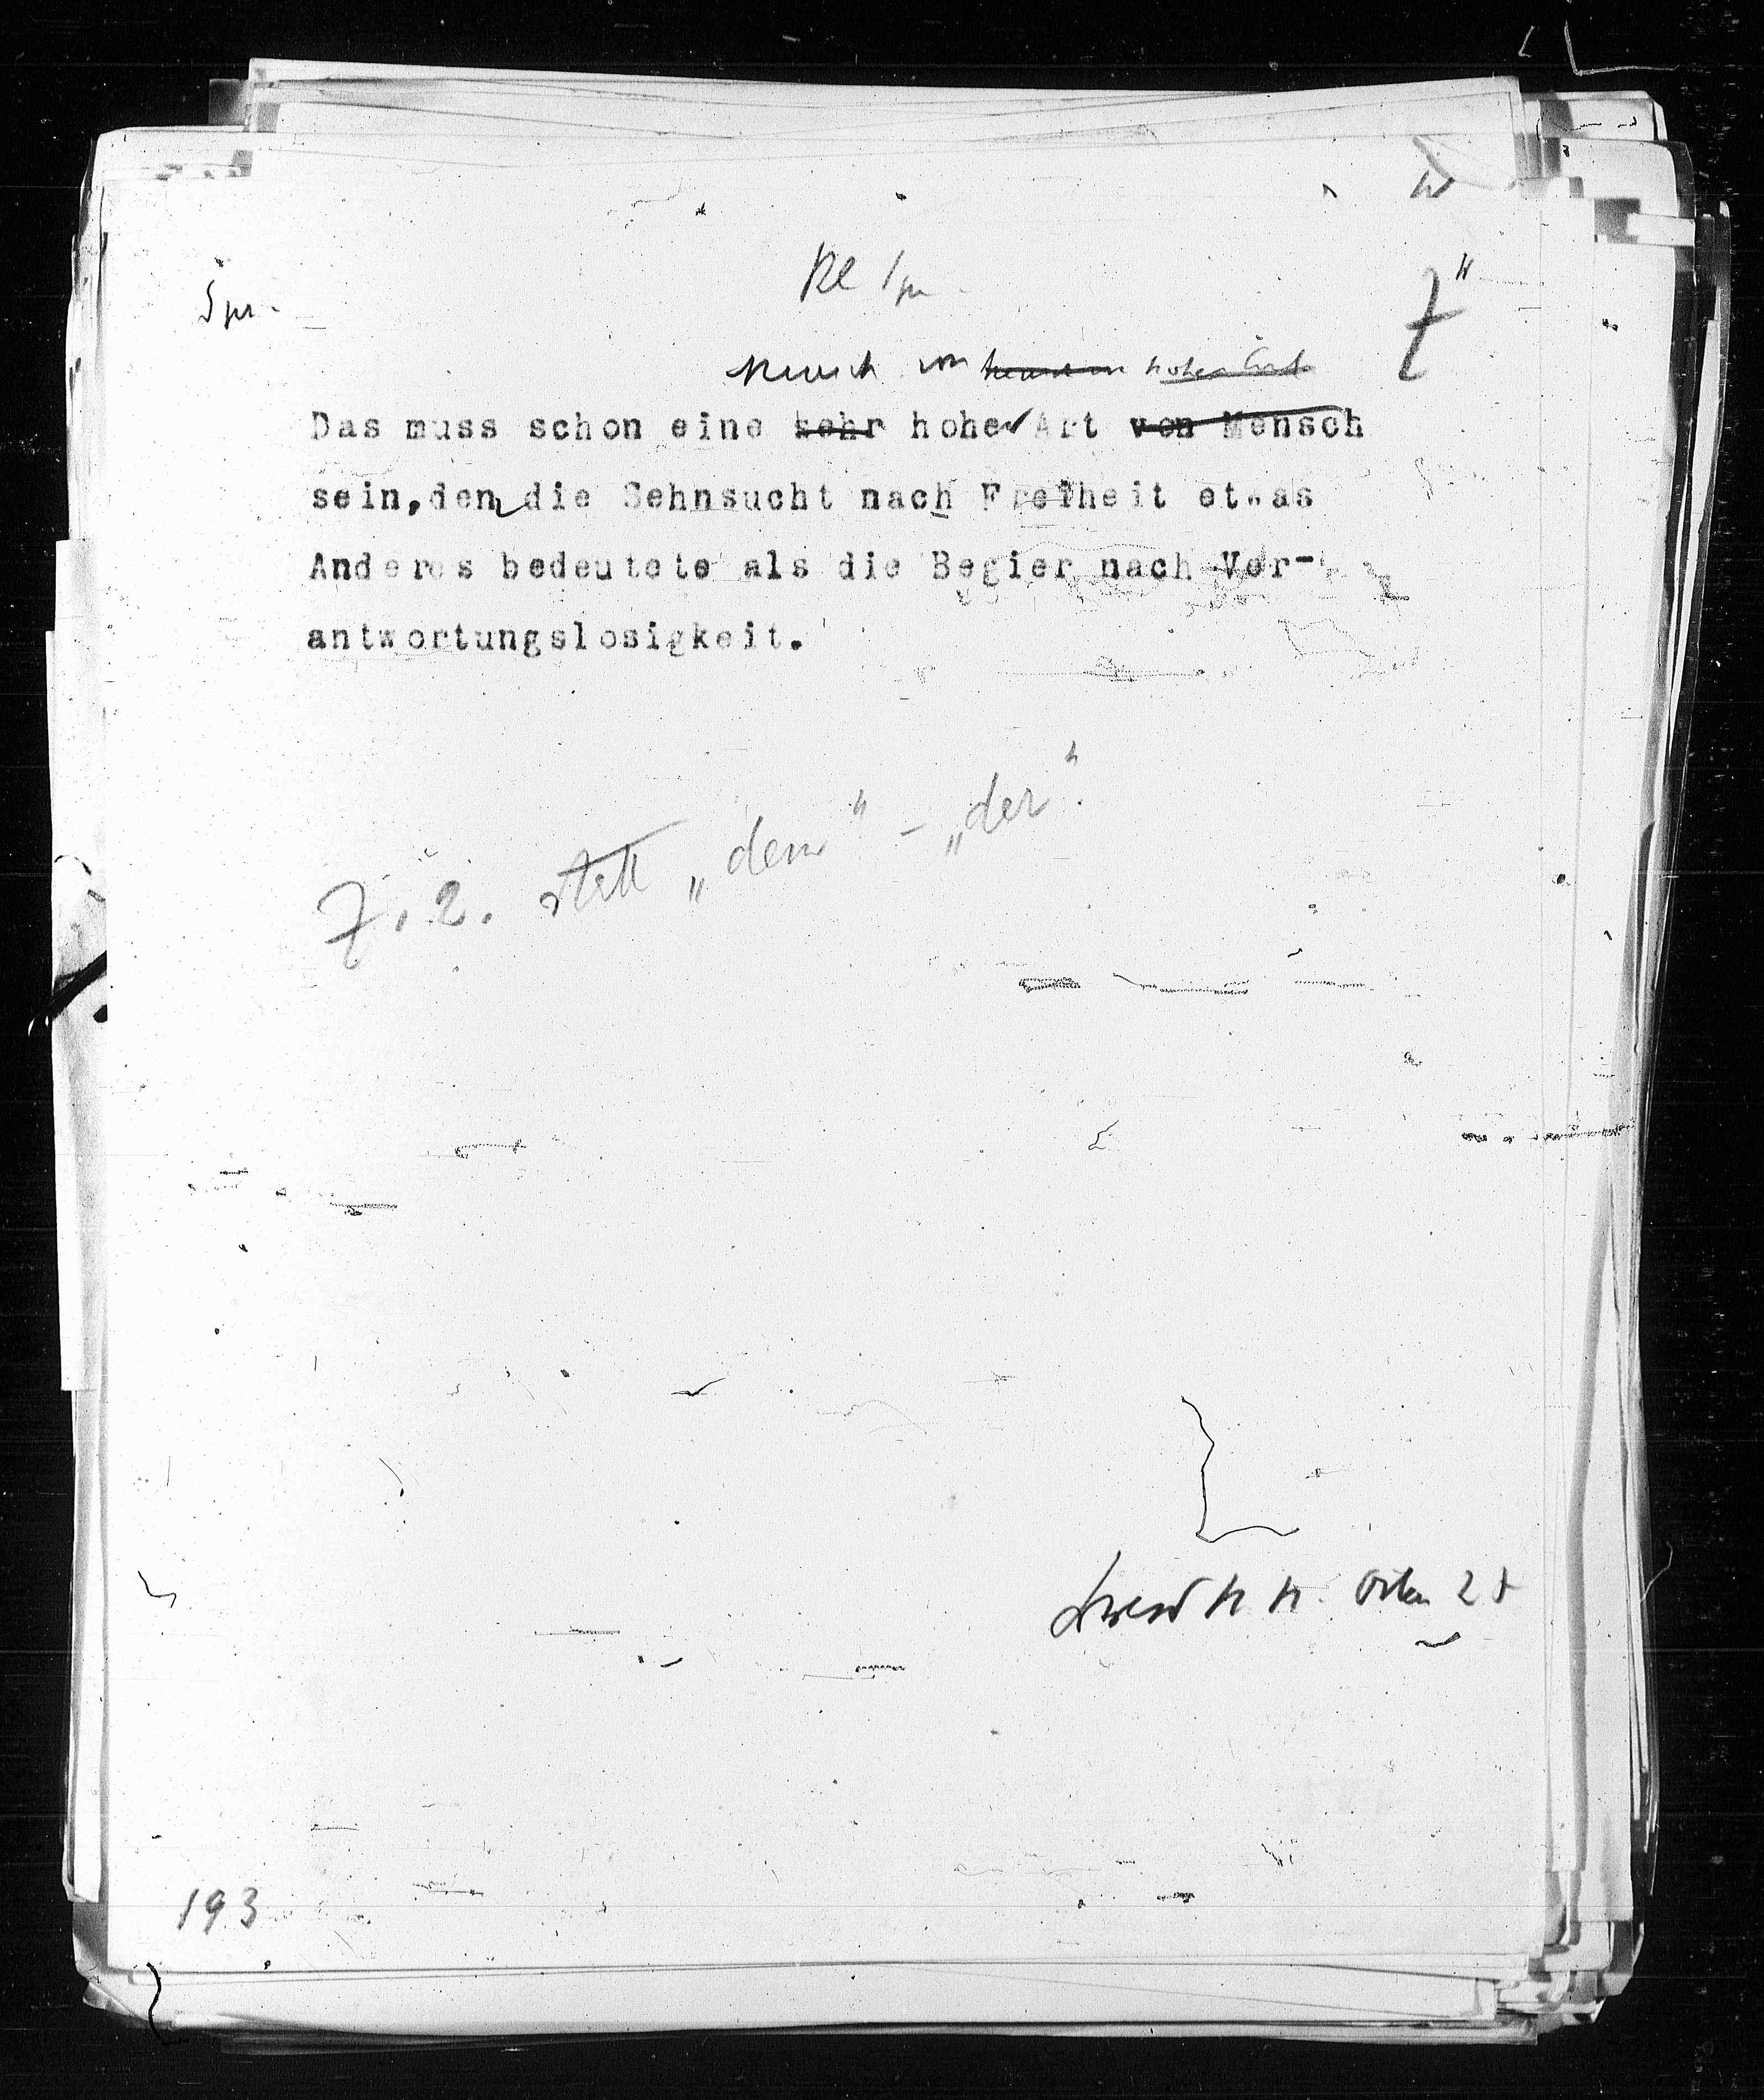 Spr.
7
Mensch von hoher
Das muss schon eine sehr hohe Art von Mensch
sein, den die Sehnsucht nach Freiheit etwas
Anderes bedeutete als die Begier nach Ver-
antwortungslosigkeit.
Z. 2. statt „dem" - „der".
193